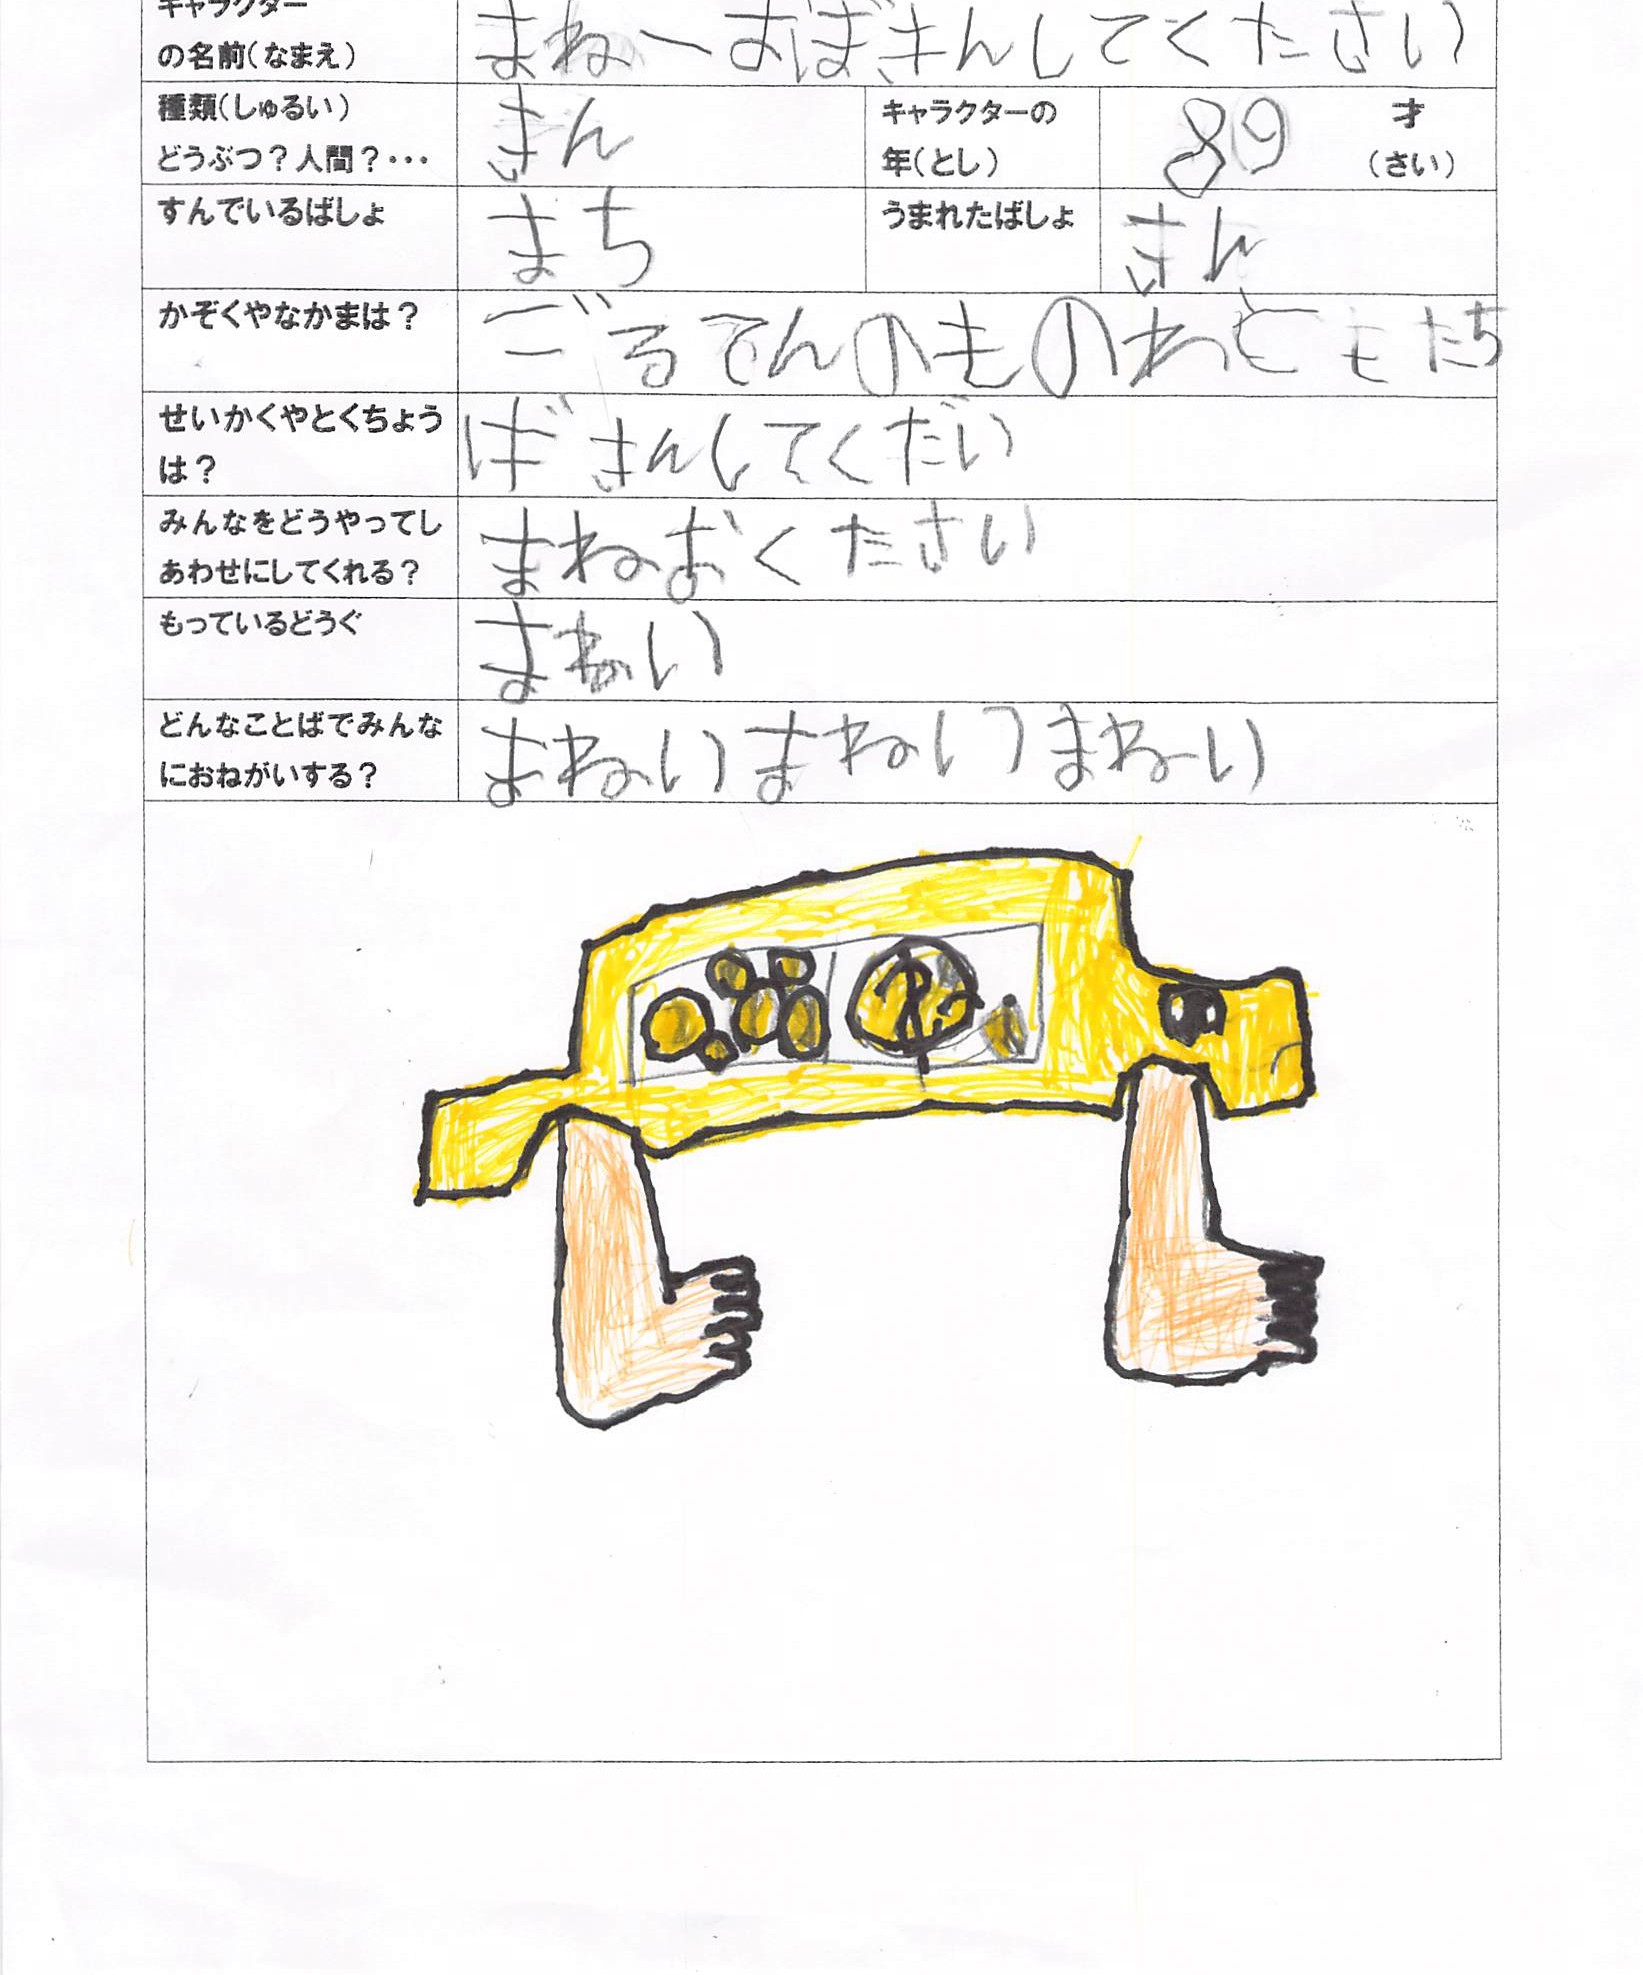 キャラクター
の名前(なまえ)
まねーおぼきんしてください
種類(しゅるい)
どうぶつ?人間?・・・
きん
キャラクターの
年(とし)
89
才
(さい)
すんでいるばしょ
まち
うまれたばしょ
きん
かぞくやなかまは?
ごるてんのものわともたち
せいかくやとくちょう
は?
ぼきんしてくだい
みんなをどうやってし
あわせにしてくれる?
まねおください
もっているどうぐ
まねい
どんなことばでみんな
におねがいする?
まねいまねいまねーい